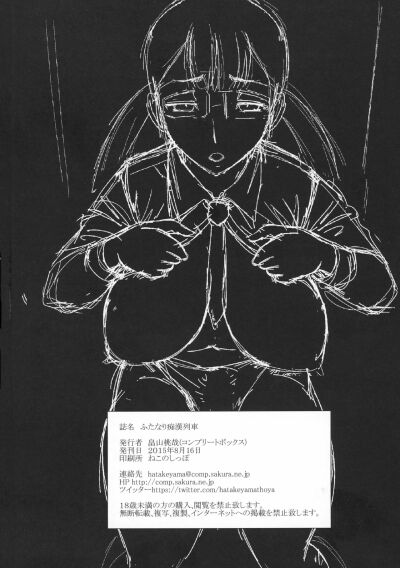 誌名 ふたなり痴漢列車
発行者 畠山桃哉(コンプリートボックス)
発刊日 2015年8月16日
印刷所 ねこのしっぽ
連絡先 hatakeyama@comp.sakura.ne.jp
HP http://comp.sakura.ne.jp
ツイッターhttps://twitter.com/hatakeyamathoya
18歳未満の方の購入、閲覧を禁止致します。
無断転載、複写、複製、インターネットへの掲載を禁止致します。